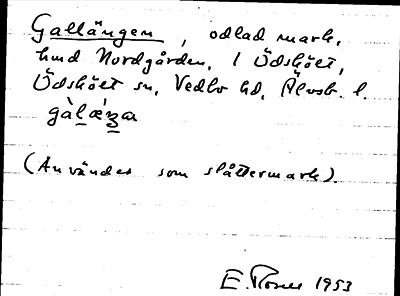 Gallängen, odlad mark,
hmd Nordgården, 1 Ödsköet,
Ödsköet sn, Vedbo hd, Älvsb. l.
gàlǽnza
(Användes som slåttermark).
E. 1953